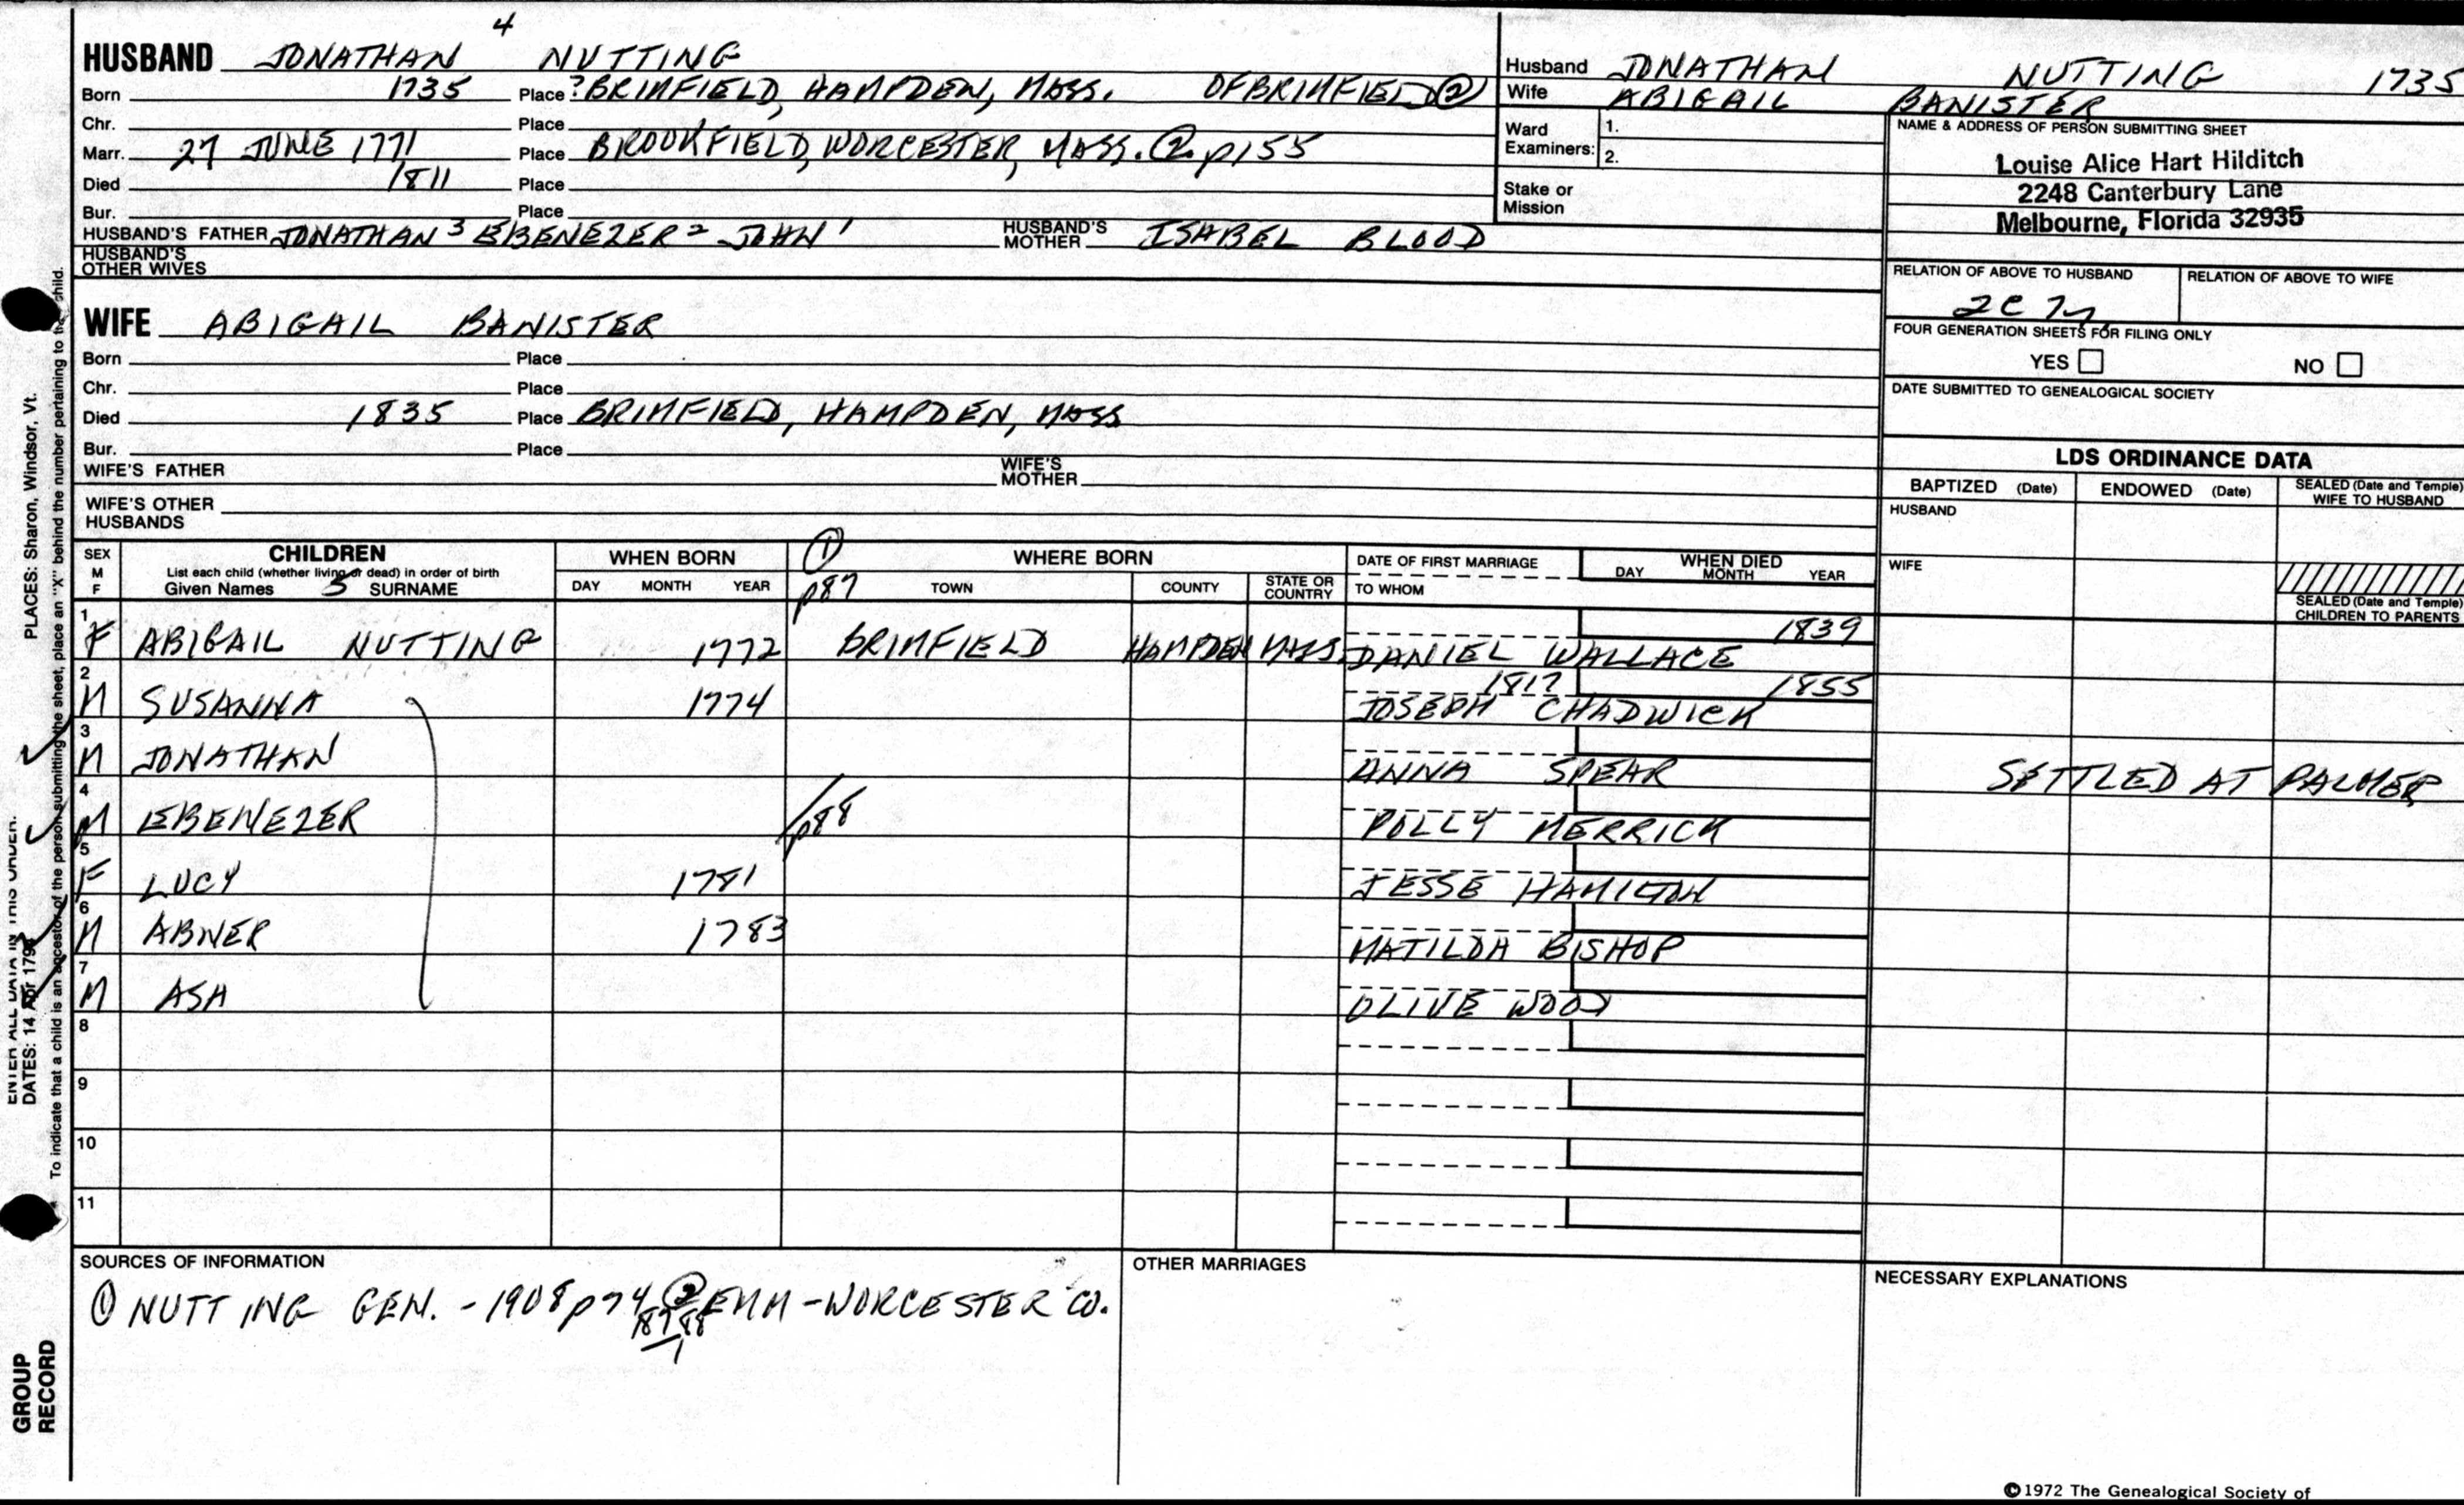 HUSBAND JONATHAN 4 NUTTING
Born 1735 Place ? BRIMFIELD, HAMPDEN, MASS. OF BRIMFIELD ②
Chr. Place
Marr. 27 JUNE 1771 Place BROOKFIELD, WORCESTER, MASS. ② p155
Died 1811 Place
Bur. Place
HUSBAND'S FATHER JONATHAN 3 EBENEZER 2 JOHN 1 HUSBAND'S MOTHER ISABEL BLOOD
HUSBAND'S OTHER WIVES
Husband JONATHAN NUTTING 1735
Wife ABIGAIL BANISTER
Ward Examiners: 1.
2.
Stake or Mission
NAME & ADDRESS OF PERSON SUBMITTING SHEET
Louise Alice Hart Hilditch
2248 Canterbury Lane
Melbourne, Florida 32935
RELATION OF ABOVE TO HUSBAND RELATION OF ABOVE TO WIFE
2C 7
FOUR GENERATION SHEETS FOR FILING ONLY
YES NO
DATE SUBMITTED TO GENEALOGICAL SOCIETY
WIFE ABIGAIL BANISTER
Born Place
Chr. Place
Died 1835 Place BRIMFIELD, HAMPDEN, MASS
Bur. Place
WIFE'S FATHER WIFE'S MOTHER
WIFE'S OTHER HUSBANDS
LDS ORDINANCE DATA
BAPTIZED (Date) ENDOWED (Date) SEALED (Date and Temple) WIFE TO HUSBAND
HUSBAND
WIFE
SEALED (Date and Temple) CHILDREN TO PARENTS
SEX M F
CHILDREN
List each child (whether living or dead) in order of birth
Given Names 5 SURNAME
WHEN BORN
DAY MONTH YEAR
① p87
WHERE BORN
TOWN COUNTY STATE OR COUNTRY
DATE OF FIRST MARRIAGE
TO WHOM
WHEN DIED
DAY MONTH YEAR
1 F ABIGAIL NUTTING 1772 BRIMFIELD HAMPDEN MASS. DANIEL WALLACE 1839
2 M SUSANNA 1774 1817 JOSEPH CHADWICK 1855
3 M JONATHAN ANNA SPEAR SETTLED AT PALMER
4 M EBENEZER p88 POLLY MERRICK
5 F LUCY 1781 JESSE HAMILTON
6 M ABNER 1783 MATILDA BISHOP
7 M ASA OLIVE WOOD
8
9
10
11
SOURCES OF INFORMATION
① NUTTING GEN. - 1908 p74 87 88 ② EMM - WORCESTER CO.
OTHER MARRIAGES
NECESSARY EXPLANATIONS
©1972 The Genealogical Society of
PLACES: Sharon, Windsor, Vt.
ENTER ALL DATA IN THIS ORDER:
DATES: 14 Apr 1794
To indicate that a child is an ancestor of the person submitting the sheet, place an "X" behind the number pertaining to the child.
GROUP
RECORD